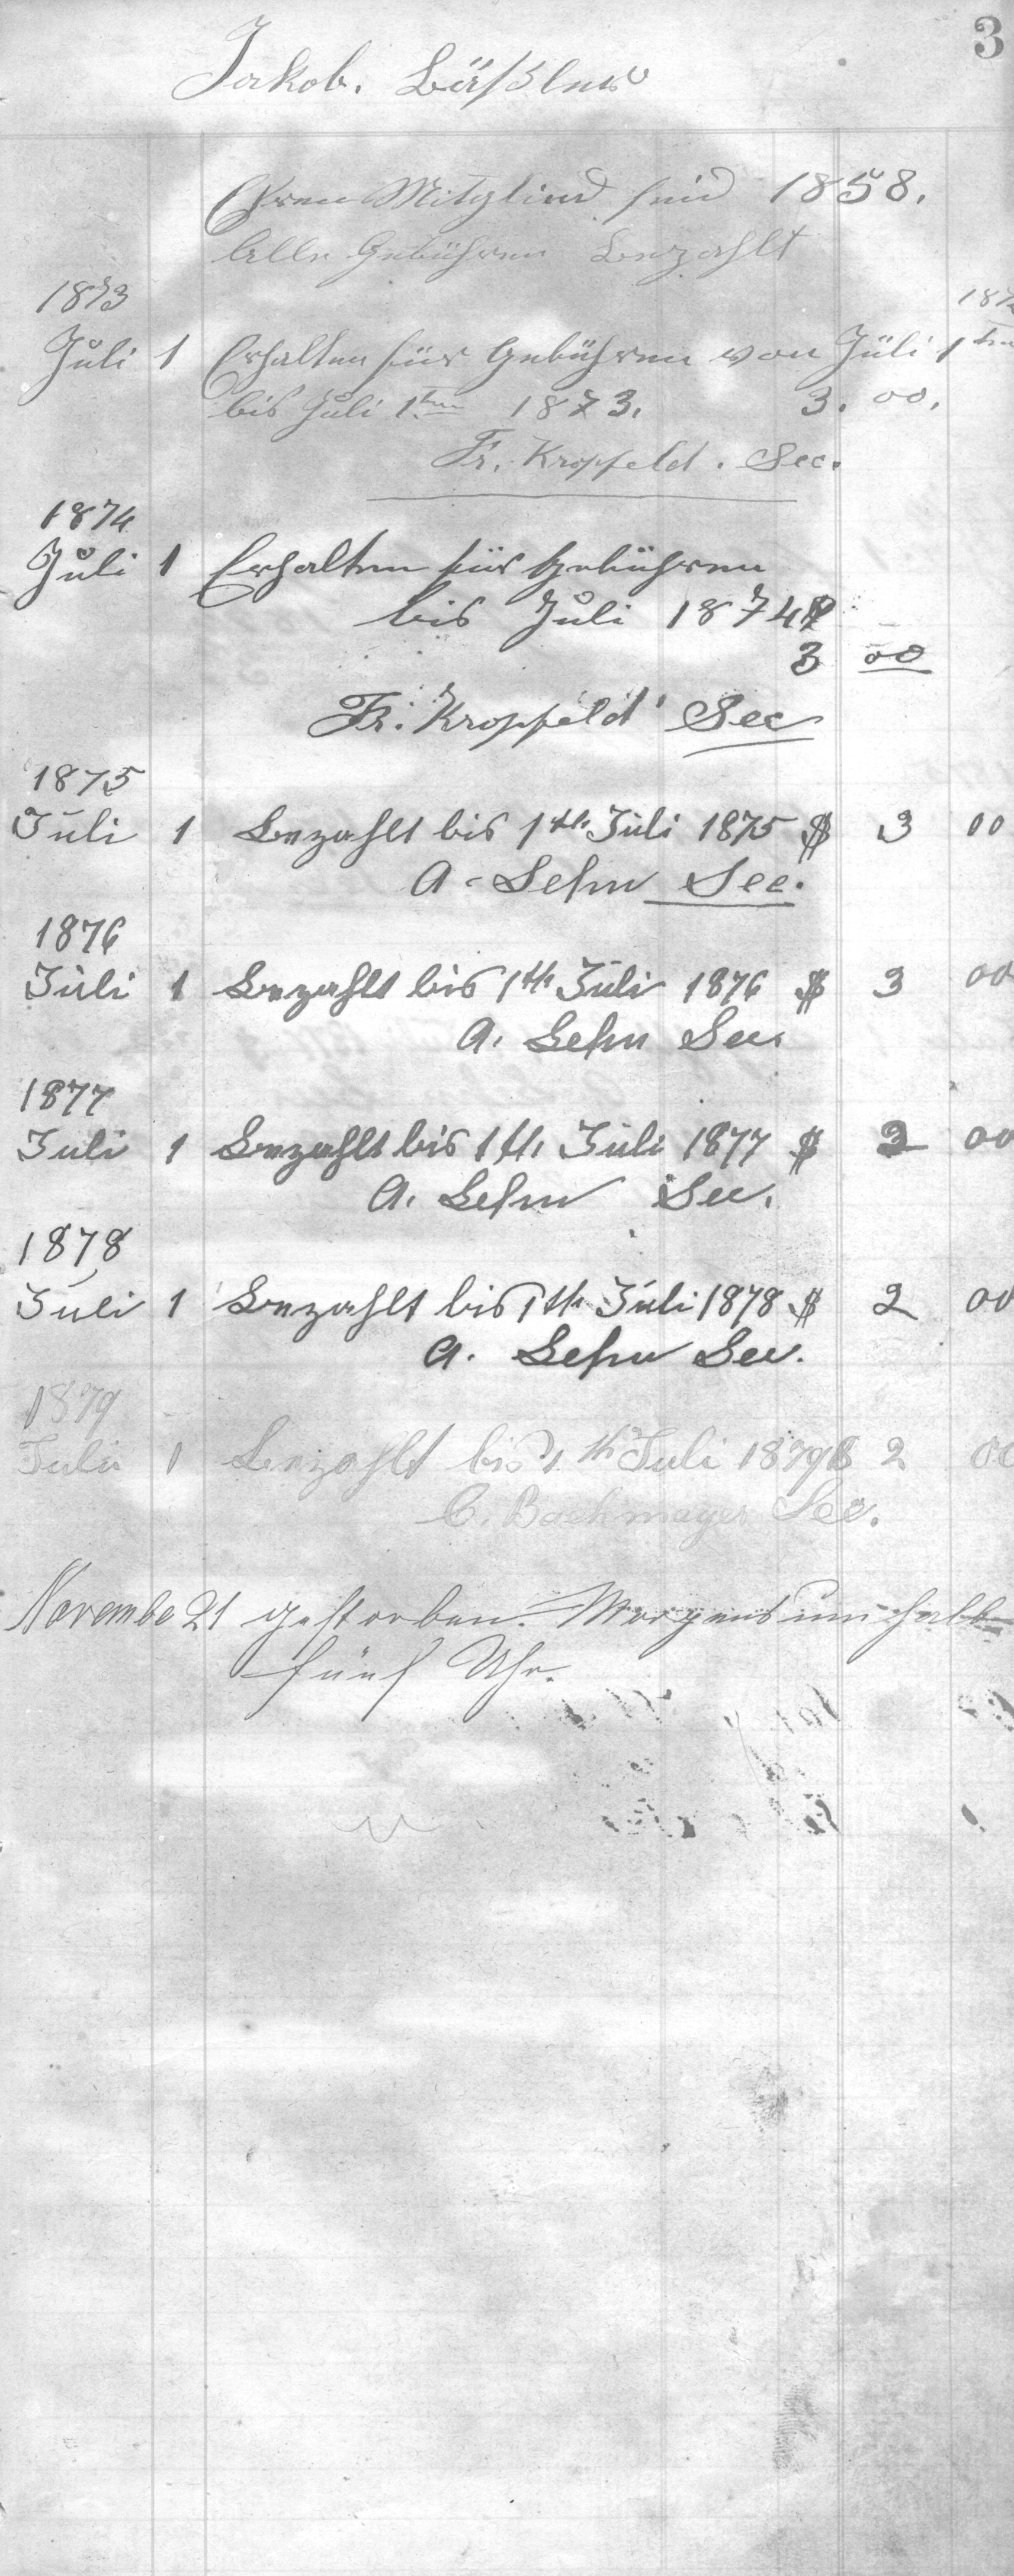 3
Jakob. Bäßler
Ehren Mitglied seid 1858.
Alle Gebühren bezahlt
1873
Juli 1 Erhalten für Gebühren von Juli 1ten 1872
bis Juli 1ten 1873. 3. 00.
Fr. Kropfeld. Sec.
1874
Juli 1 Erhalten für Gebühren
bis Juli 1874 $
3 00
Fr. Kropfeld Sec
1875
Juli 1 Bezahlt bis 1th Juli 1875 $ 3 00
A. Lehn Sec.
1876
Juli 1 Bezahlt bis 1th Juli 1876 $ 3 00
A. Lehn Sec.
1877
Juli 1 Bezahlt bis 1th Juli 1877 $ 00
A. Lehn Sec.
1878
Juli 1 Bezahlt bis 1th Juli 1878 $ 2 00
A. Lehn Sec.
1879
Juli 1 Bezahlt bis 1th Juli 1879 $ 2 00
C. Bachmayer Sec.
Novembe 21 gestorben. Morgens um halb
fünf Uhr.